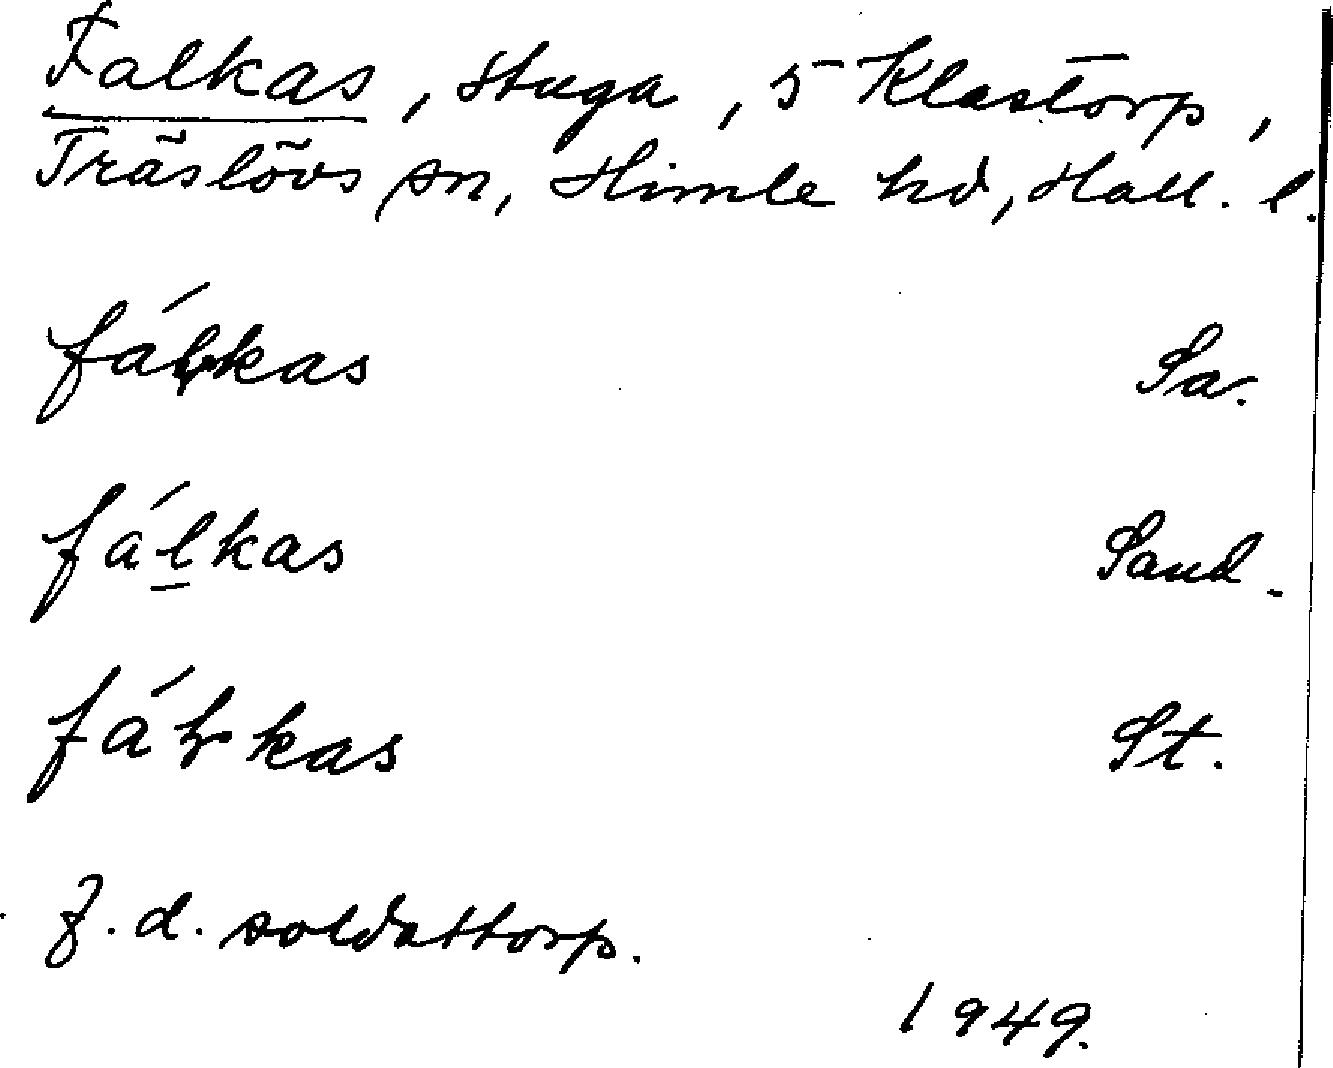 Falkas, stuga, 5 Klastorp,
Träslövs sn, Himle hd, Hall. l.
fáɫkas Sa.
fál̲kas Sand.
fáɫkas St.
F.d. soldattorp.
1949.